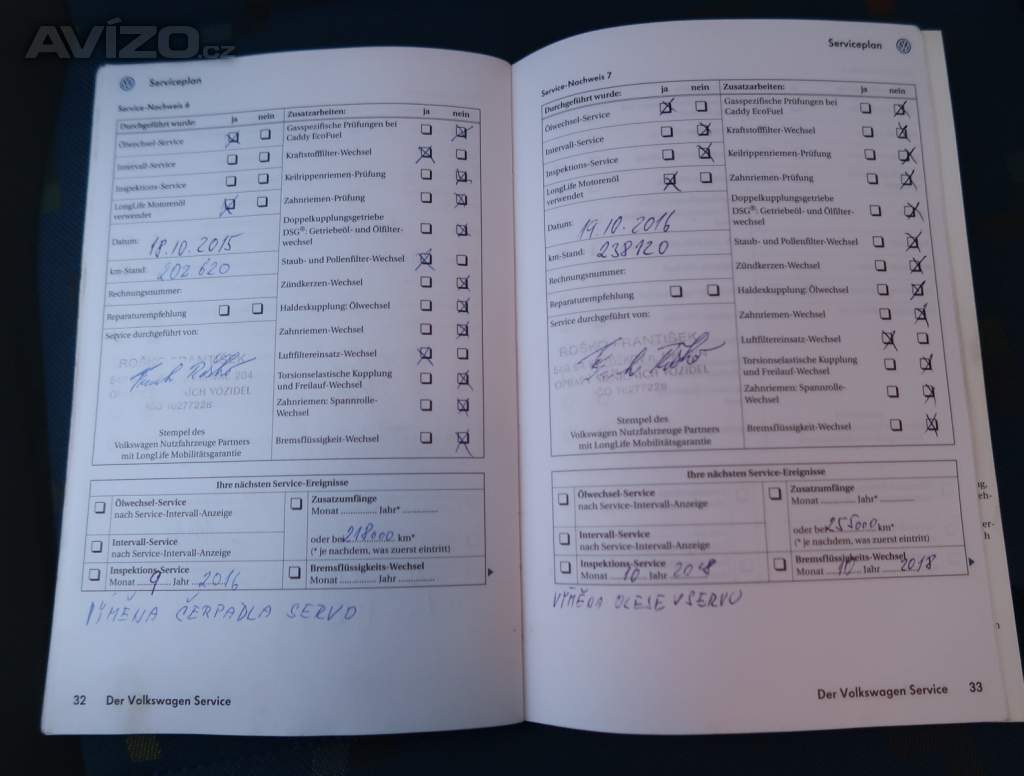 AVÍZO.cz
Serviceplan
Service-Nachweis 6
Durchgeführt wurde: ja nein
Ölwechsel-Service
Intervall-Service
Inspektions-Service
LongLife Motorenöl
verwendet
Datum: 18.10.2015
km-Stand: 202 620
Rechnungsnummer:
Reparaturempfehlung
Service durchgeführt von:
ROŠKO FRANTIŠEK
204
VOZIDEL
Stempel des
Volkswagen Nutzfahrzeuge Partners
mit LongLife Mobilitätsgarantie
Zusatzarbeiten: ja nein
Gasspezifische Prüfungen bei
Caddy EcoFuel
Kraftstofffilter-Wechsel
Keilrippenriemen-Prüfung
Zahnriemen-Prüfung
Doppelkupplungsgetriebe
DSG®: Getriebeöl- und Ölfilter-
wechsel
Staub- und Pollenfilter-Wechsel
Zündkerzen-Wechsel
Haldexkupplung: Ölwechsel
Zahnriemen-Wechsel
Luftfiltereinsatz-Wechsel
Torsionselastische Kupplung
und Freilauf-Wechsel
Zahnriemen: Spannrolle-
Wechsel
Bremsflüssigkeit-Wechsel
Ihre nächsten Service-Ereignisse
Ölwechsel-Service
nach Service-Intervall-Anzeige
Intervall-Service
nach Service-Intervall-Anzeige
Inspektions-Service
Monat 9 Jahr 2016
Zusatzumfänge
Monat .............. Jahr* ..............
oder bei 218000 km*
(* je nachdem, was zuerst eintritt)
Bremsflüssigkeits-Wechsel
Monat .............. Jahr ..............
VÝMĚNA ČERPADLA SERVO
32 Der Volkswagen Service
Serviceplan
Service-Nachweis 7
Durchgeführt wurde: ja nein
Ölwechsel-Service
Intervall-Service
Inspektions-Service
LongLife Motorenöl
verwendet
Datum: 19.10.2016
km-Stand: 238120
Rechnungsnummer:
Reparaturempfehlung
Service durchgeführt von:
ROŠKO FRANTIŠEK
VOZIDEL
Stempel des
Volkswagen Nutzfahrzeuge Partners
mit LongLife Mobilitätsgarantie
Zusatzarbeiten: ja nein
Gasspezifische Prüfungen bei
Caddy EcoFuel
Kraftstofffilter-Wechsel
Keilrippenriemen-Prüfung
Zahnriemen-Prüfung
Doppelkupplungsgetriebe
DSG®: Getriebeöl- und Ölfilter-
wechsel
Staub- und Pollenfilter-Wechsel
Zündkerzen-Wechsel
Haldexkupplung: Ölwechsel
Zahnriemen-Wechsel
Luftfiltereinsatz-Wechsel
Torsionselastische Kupplung
und Freilauf-Wechsel
Zahnriemen: Spannrolle-
Wechsel
Bremsflüssigkeit-Wechsel
Ihre nächsten Service-Ereignisse
Ölwechsel-Service
nach Service-Intervall-Anzeige
Intervall-Service
nach Service-Intervall-Anzeige
Inspektions-Service
Monat 10 Jahr 2018
Zusatzumfänge
Monat .............. Jahr* ..............
oder bei 255000 km*
(* je nachdem, was zuerst eintritt)
Bremsflüssigkeits-Wechsel
Monat 10 Jahr 2018
VÝMĚNA OLEJE V SERVO
Der Volkswagen Service 33